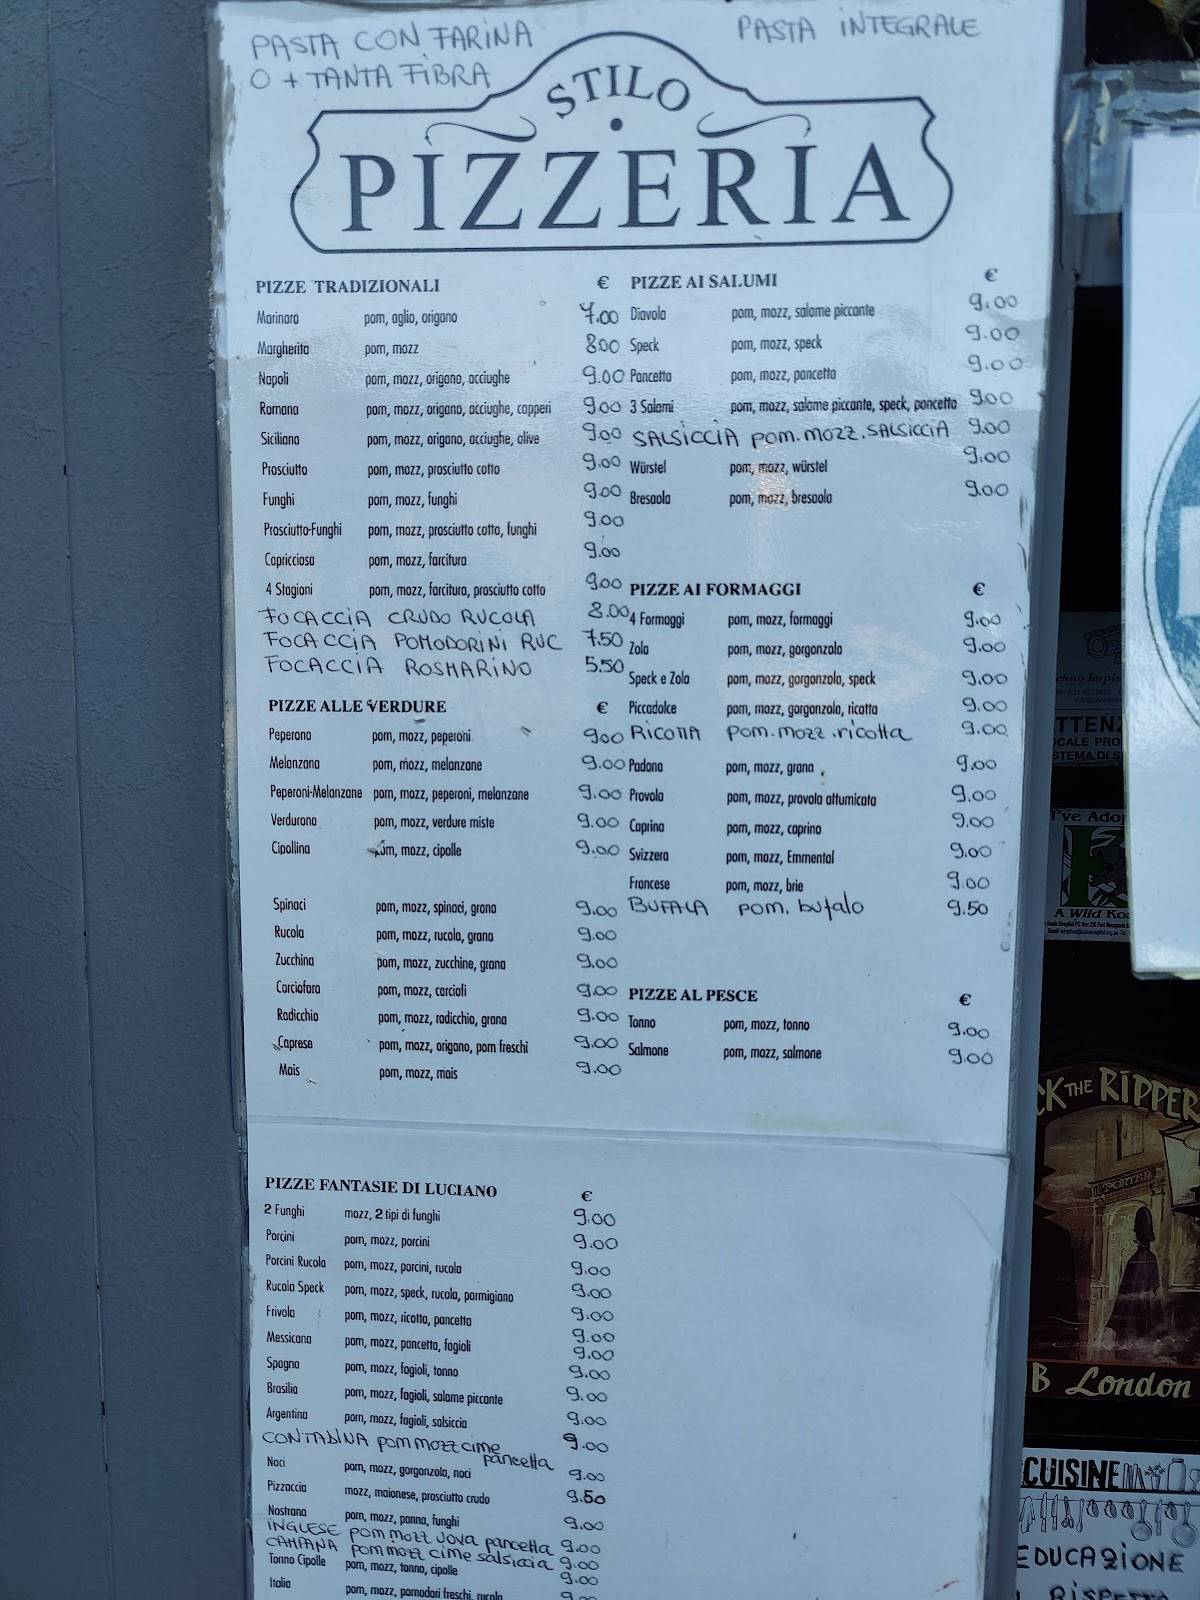 PASTA CON FARINA
0 + TANTA FIBRA
PASTA INTEGRALE
STILO
PIZZERIA
PIZZE TRADIZIONALI €
Marinara pom, aglio, origano 7.00
Margherita pom, mozz 8.00
Napoli pom, mozz, origano, acciughe 9.00
Romana pom, mozz, origano, acciughe, capperi 9.00
Siciliana pom, mozz, origano, acciughe, olive 9.00
Prosciutto pom, mozz, prosciutto cotto 9.00
Funghi pom, mozz, funghi 9.00
Prosciutto-Funghi pom, mozz, prosciutto cotto, funghi 9.00
Capricciosa pom, mozz, farcitura 9.00
4 Stagioni pom, mozz, farcitura, prosciutto cotto 9.00
FOCACCIA CRUDO RUCOLA 8.00
FOCACCIA POMODORINI RUC 7.50
FOCACCIA ROSMARINO 5.50
PIZZE ALLE VERDURE €
Peperona pom, mozz, peperoni 9.00
Melanzana pom, mozz, melanzane 9.00
Peperoni-Melanzane pom, mozz, peperoni, melanzane 9.00
Verdurona pom, mozz, verdure miste 9.00
Cipollina pom, mozz, cipolle 9.00
Spinaci pom, mozz, spinaci, grana 9.00
Rucola pom, mozz, rucola, grana 9.00
Zucchina pom, mozz, zucchine, grana 9.00
Carciofara pom, mozz, carciofi 9.00
Radicchio pom, mozz, radicchio, grana 9.00
Caprese pom, mozz, origano, pom freschi 9.00
Mais pom, mozz, mais 9.00
PIZZE AI SALUMI €
Diavola pom, mozz, salame piccante 9.00
Speck pom, mozz, speck 9.00
Pancetta pom, mozz, pancetta 9.00
3 Salami pom, mozz, salame piccante, speck, pancetta 9.00
SALSICCIA POM. MOZZ. SALSICCIA 9.00
Würstel pom, mozz, würstel 9.00
Bresaola pom, mozz, bresaola 9.00
PIZZE AI FORMAGGI €
4 Formaggi pom, mozz, formaggi 9.00
Zola pom, mozz, gorgonzola 9.00
Speck e Zola pom, mozz, gorgonzola, speck 9.00
Piccadolce pom, mozz, gorgonzola, ricotta 9.00
RICOTTA POM. MOZZ. ricotta 9.00
Padana pom, mozz, grana 9.00
Provola pom, mozz, provola affumicata 9.00
Caprina pom, mozz, caprino 9.00
Svizzera pom, mozz, Emmental 9.00
Francese pom, mozz, brie 9.00
BUFALA POM. bufala 9.50
PIZZE AL PESCE €
Tonno pom, mozz, tonno 9.00
Salmone pom, mozz, salmone 9.00
PIZZE FANTASIE DI LUCIANO €
2 Funghi mozz, 2 tipi di funghi 9.00
Porcini pom, mozz, porcini 9.00
Porcini Rucola pom, mozz, porcini, rucola 9.00
Rucola Speck pom, mozz, speck, rucola, parmigiano 9.00
Frivola pom, mozz, ricotta, pancetta 9.00
Messicana pom, mozz, pancetta, fagioli 9.00
9.00
Spagna pom, mozz, fagioli, tonno 9.00
Brasilia pom, mozz, fagioli, salame piccante 9.00
Argentina pom, mozz, fagioli, salsiccia 9.00
CONTADINA pom mozz cime pancetta 9.00
Noci pom, mozz, gorgonzola, noci 9.00
Pizzaccia mozz, maionese, prosciutto crudo 9.50
Nostrana pom, mozz, panna, funghi 9.00
INGLESE pom mozz uova pancetta 9.00
CAMPANA pom mozz cime salsiccia 9.00
Tonno Cipolle pom, mozz, tonno, cipolle 9.00
Italia pom, mozz, pomodori freschi, rucola
I've Adop
A Wild Ko
CK THE RIPPER
PORTER
B London
CUISINE
EDUCAZIONE